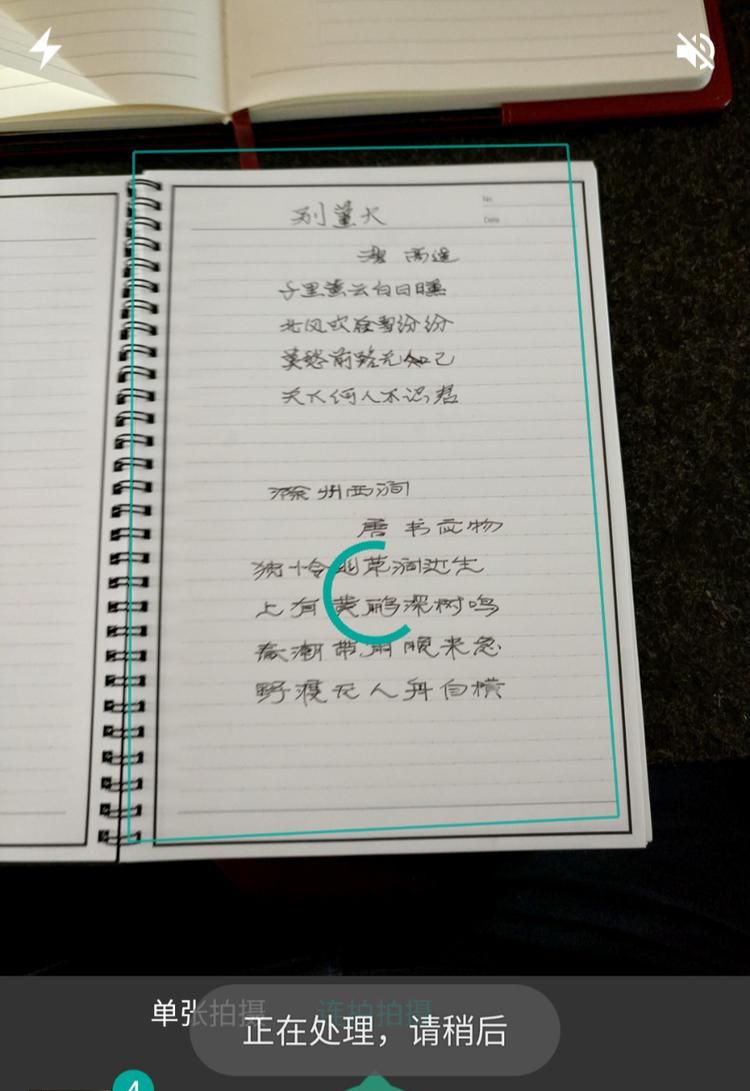 No.
Date
别董大
高适
千里黄云白日曛
北风吹雁雪纷纷
莫愁前路无知己
天下何人不识君
滁州西涧
唐 韦应物
独怜幽草涧边生
上有黄鹂深树鸣
春潮带雨晚来急
野渡无人舟自横
单张拍摄 连拍拍摄
正在处理，请稍后
4